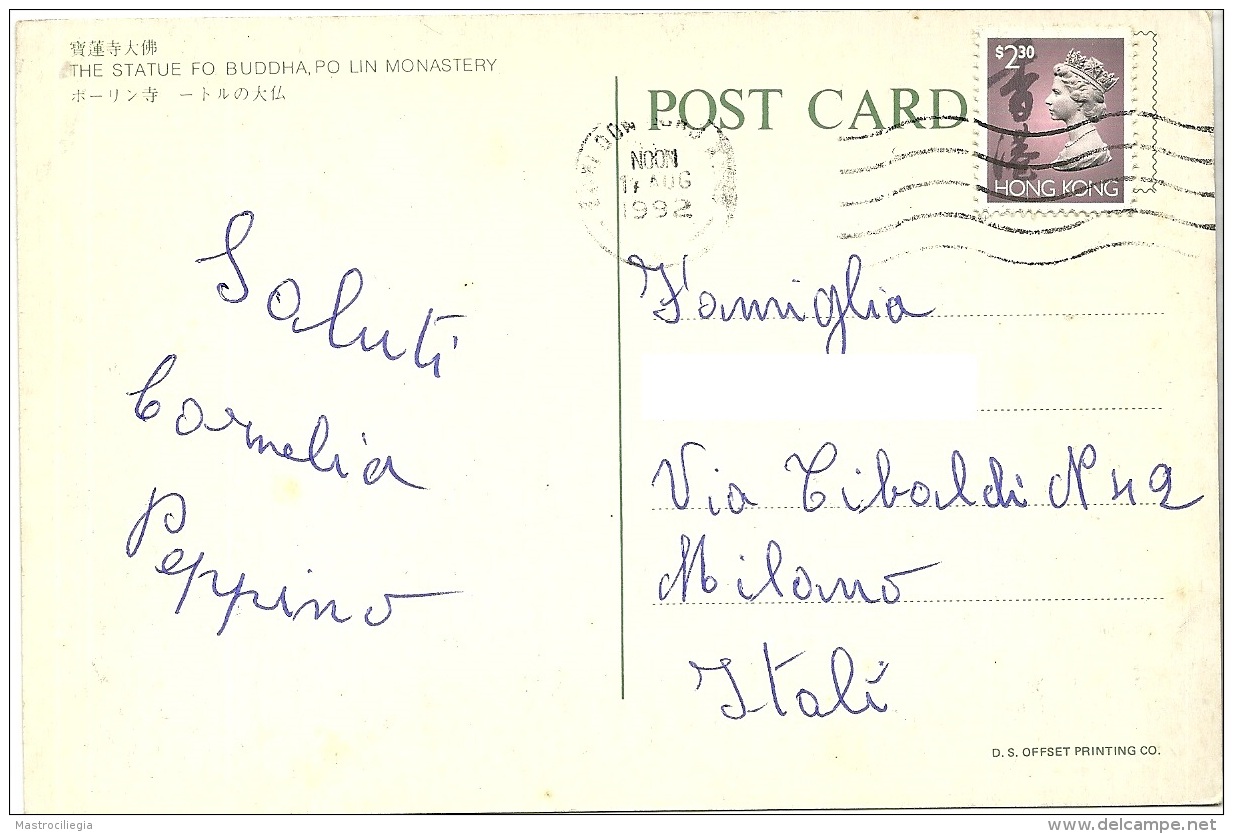 寶蓮寺大佛
THE STATUE FO BUDDHA, PO LIN MONASTERY
ポーリン寺 ートルの大仏
POST CARD
$2.30
香港
HONG KONG
NOON
17 AUG
1992
Saluti
Cornelia
Peppino
Famiglia
Via Tibaldi N 42
Milano
Itali
D. S. OFFSET PRINTING CO.
Mastrociliegia
www.delcampe.net